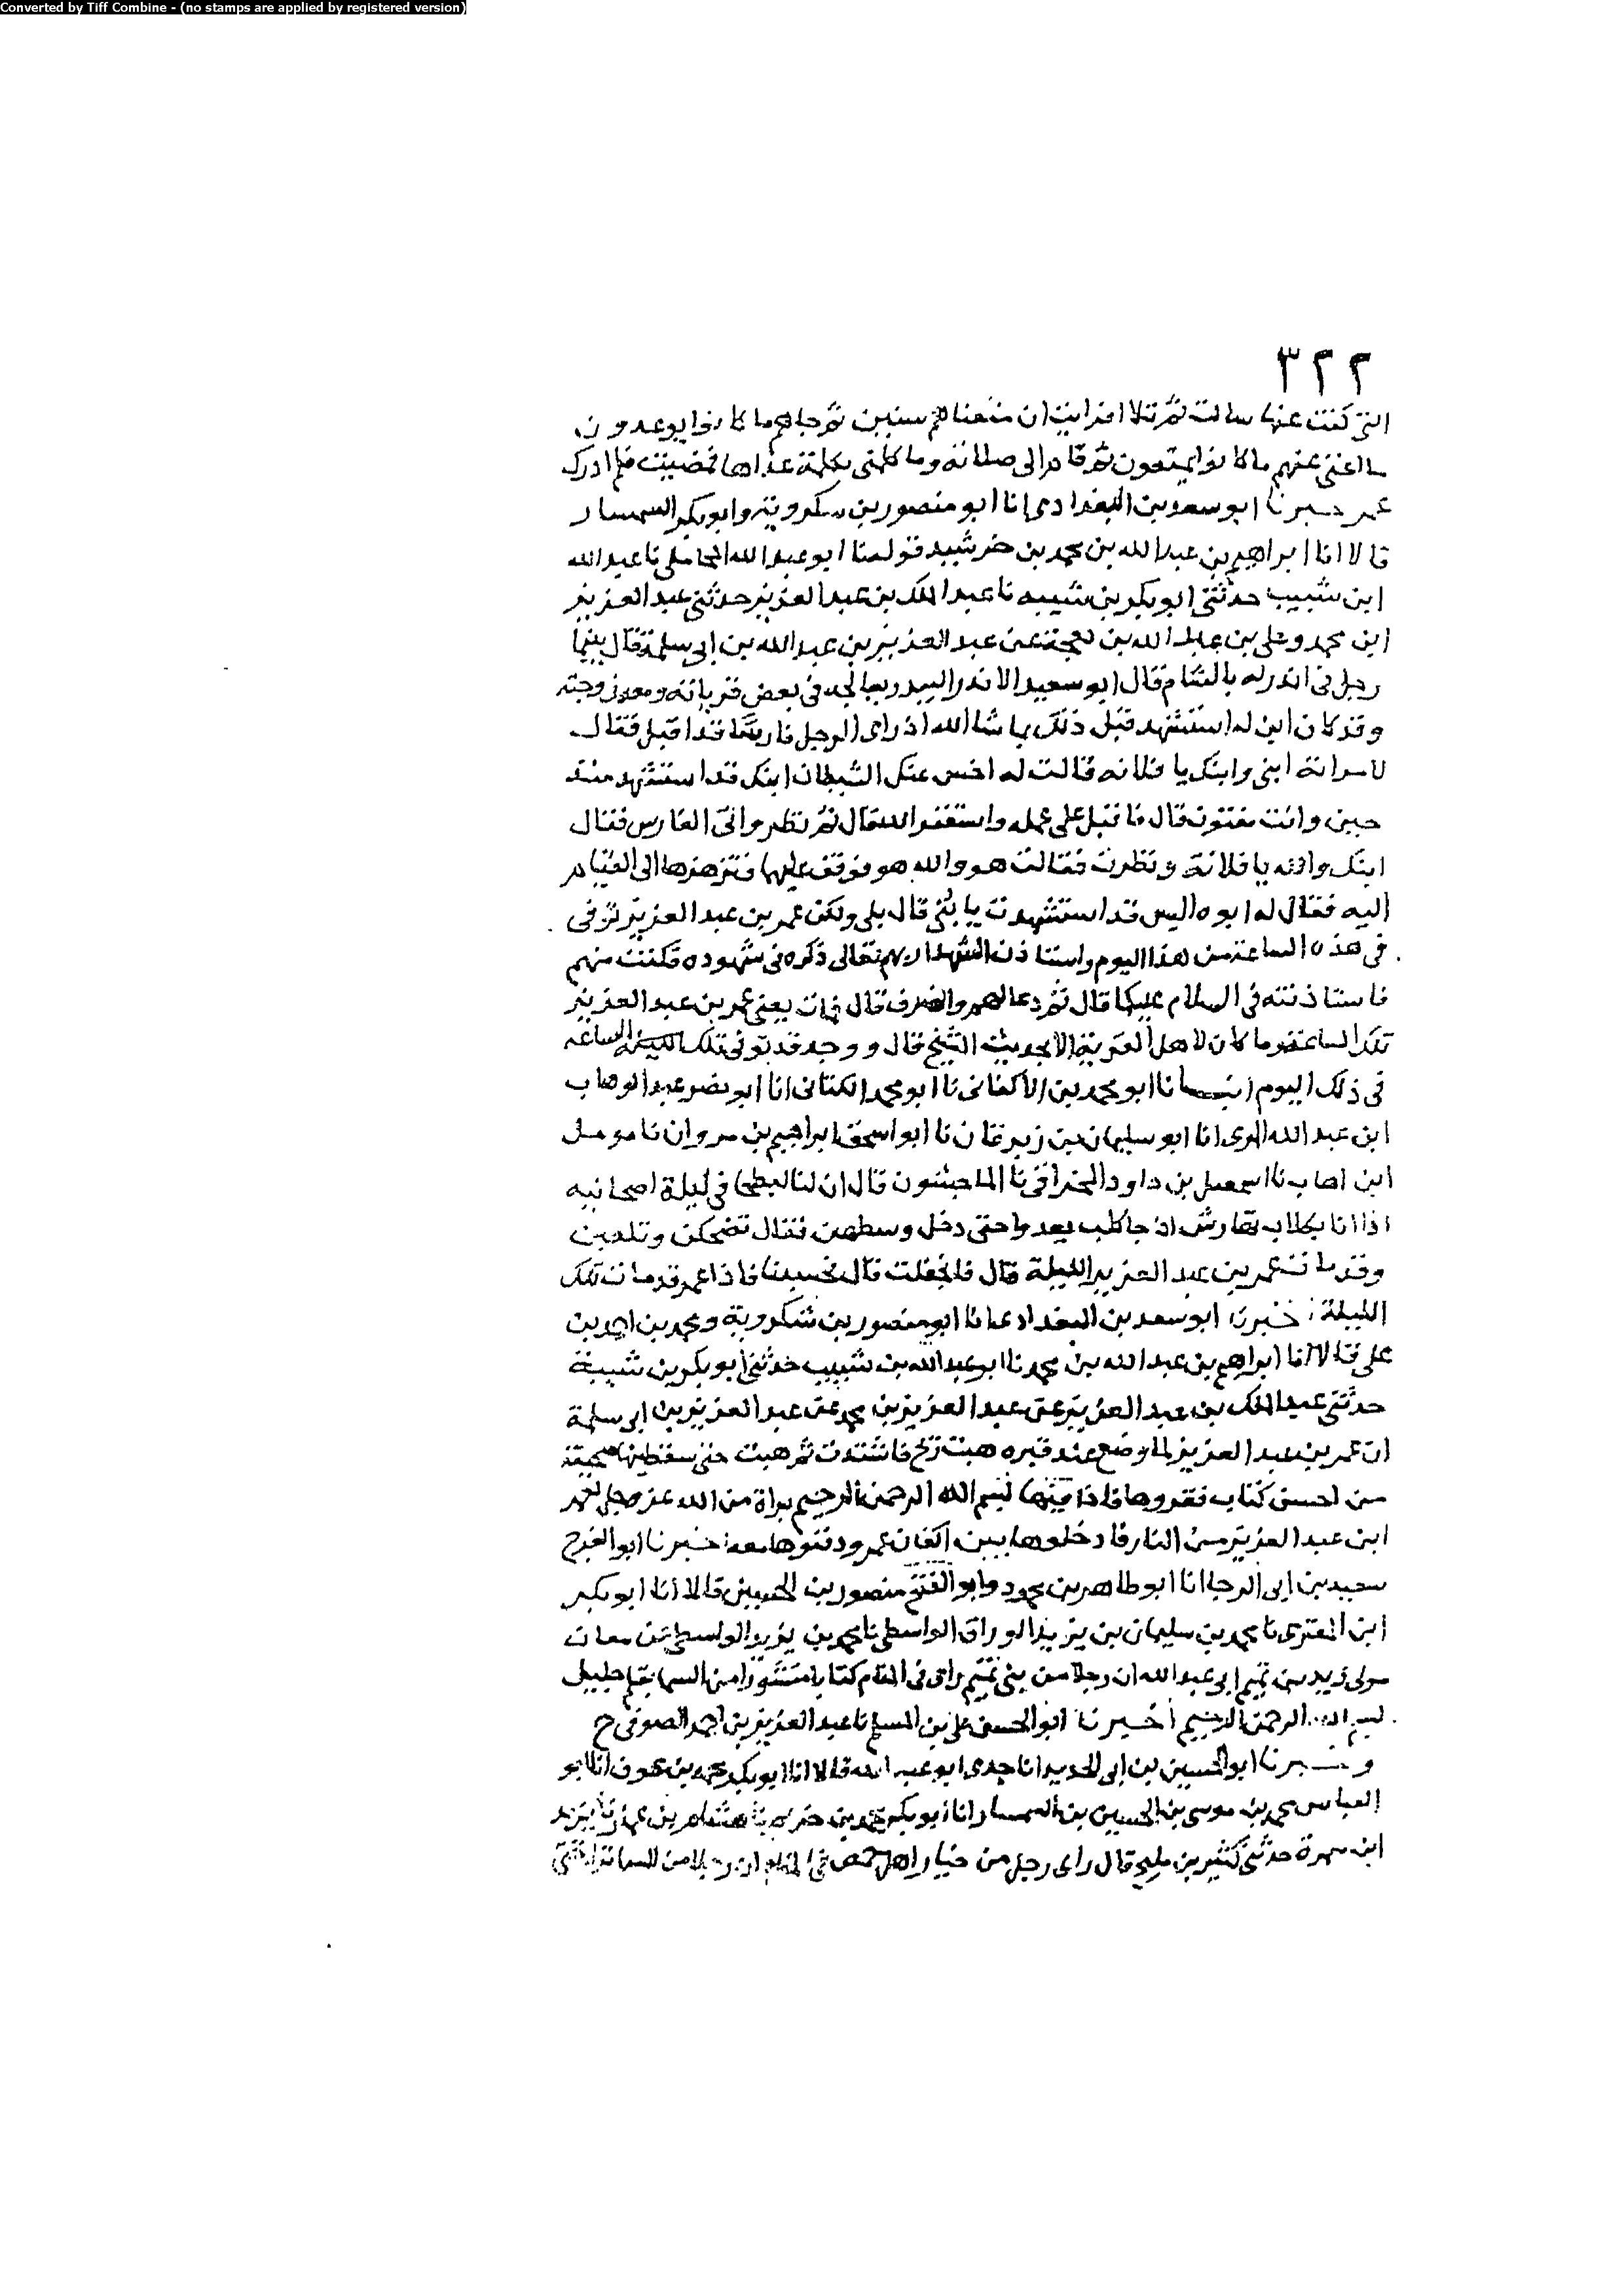 Converted by Tiff Combine - (no stamps are applied by registered version)
٣٢٢
التي كنت عنها سالت ثم تلا افرايت ان متعناهم سنين ثم جاهم ما كانوا يوعدون
ما اغنى عنهم ما كانوا يمتعون ثم قام الى صلاته وما كلمني بكلمة غداها فمضيت فلم ادرك
عمر خبرنا ابو سعد بن البغدادي انا ابو منصور بن شكرويه وابو بكر السمسار
قالا انا ابراهيم بن عبد الله بن محمد بن خرشيد قوله نا ابو عبد الله المحاملي نا عبد الله
ابن شبيب حدثني ابو بكر بن شيبه نا عبد الملك بن عبد العزيز حدثني عبد العزيز
ابن محمد وعلي بن عبد الله بن عن عبد العزيز بن عبد الله بن ابي سلمة قال بينما
رجل في اندر له بالشام قال ابو سعيد الاندر البيدر يعالجه في بعض ومعه زوجته
وقد كان ابن له استشهد قبل ذلك بما شا الله اذ راى الرجل فارسا قد اقبل فقال
لامراته ابني وابنك يا فلانه قالت له اخس عنك الشيطان ابنك قد استشهد منذ
حين وانت مفتون قال فاقبل على عمله واستغفر الله قال ثم نظر وافى الفارس فقال
ابنك والله يا فلانة ونظرت فقالت هو والله هو فوقف عليها الى القيام
اليه فقال له ابوه اليس قد استشهدت يا بني قال بلى ولكن عمر بن عبد العزيز توفى
في هذه الساعة من هذا اليوم واستاذن الشهدا ربهم تعالى ذكره في شهوده فكنت منهم
فاستاذنته في السلام عليكما قال ثم دعا لهم وانصرف قال فمات يعني عمر بن عبد العزيز
تلك الساعة وما كان لاهل القرية الا بحديث الشيخ قال ووجد قد توفى تلك الساعه
في ذلك اليوم نا ابو محمد بن الاكفاني نا ابو محمد الكتاني انا ابو نصر عبد الوهاب
ابن عبد الله المري انا ابو سليمان بن زبر نا ابو اسحق ابراهيم بن مروان نا مومل
ابن اهاب نا اسمعيل بن داود المخراقي نا الماجشون قال ان لنا لبطحا في ليلة اضحيانيه
اذا انا بكلاب تهارش اذ جا كلب يعدوا حتى دخل وسطهن فقال تضحكن وتلعبن
وقد مات عمر بن عبد العزيز الليلة قال فانجفلت قال فحسبنا فاذا عمر قد مات تلك
الليلة خبرنا ابو سعد بن البغدادي انا ابو منصور بن شكرويه ومحمد بن احمد بن
علي قالا انا ابراهيم بن عبد الله بن محمد نا ابو عبد الله بن شبيب حدثني ابو بكر بن شيبة
حدثني عبد الملك بن عبد العزيز عن عبد العزيز بن محمد عن عبد العزيز بن ابي سلمة
ان عمر بن عبد العزيز لما وضع عند قبره هبت ريح فاشتدت ثم هبت حتى سقط منها صحيفة
من احسن كتاب فقروها فاذا فيها بسم الله الرحمن الرحيم براة من الله عز وجل لعمر
ابن عبد العزيز من النار فادخلوها بين اكفان عمر ودفنوها معه خبرنا ابو الفرج
سعيد بن ابي الرجا انا ابو طاهر بن محمود وابو الفتح منصور بن الحسين قالا انا ابو بكر
ابن المقري نا محمد بن سليمان بن يزيد الوراق الواسطي نا محمد بن يزيد الواسطي عن معان
مولى زيد بن تميم ابي عبد الله ان رجلا من بني تميم راى في المنام كتابا منشورا من السما بقلم جليل
بسم الله الرحمن الرحيم اخبرنا ابو الحسن علي بن المسلم نا عبد العزيز بن احمد الصوفي ح
وخبرنا ابو الحسين بن ابي الحديد انا جدي ابو عبد الله قالا انا ابو بكر محمد بن عوف انا ابو
العباس محمد بن موسى بن الحسين بن السمسار انا ابو بكر محمد بن خريم نا هشام بن عمار نا يزيد
ابن سمرة حدثني كثير بن مليح قال راى رجل من خيار اهل حمص في المنام ان رجلا من السما